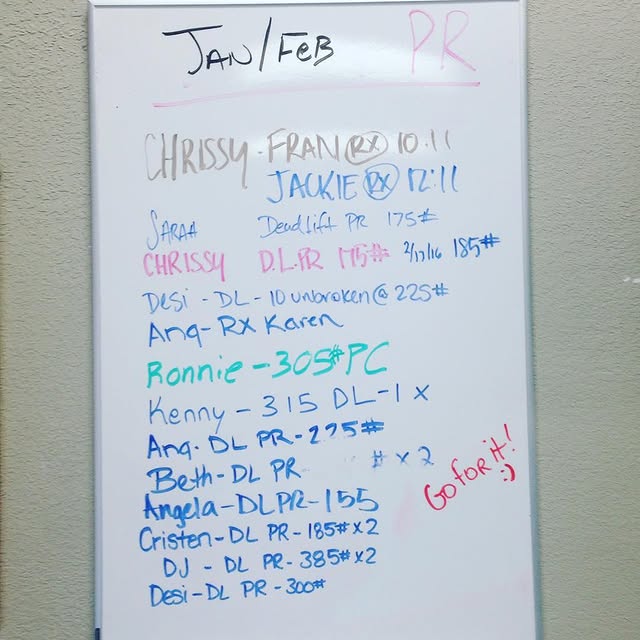 JAN/FEB PR
CHRISSY - FRAN RX 10:11
JACKIE RX 12:11
SARAH Deadlift PR 175#
CHRISSY D.L. PR 175# 2/17/16 185#
Desi - DL - 10 unbroken @ 225#
Ang - RX Karen
Ronnie - 305# PC
Kenny - 315 DL - 1 x
Ang. DL PR - 225#
Beth - DL PR # x 2
Angela - DL PR - 155
Go for it! :)
Cristen - DL PR - 185# x 2
DJ - DL PR - 385# x 2
Desi - DL PR - 300#